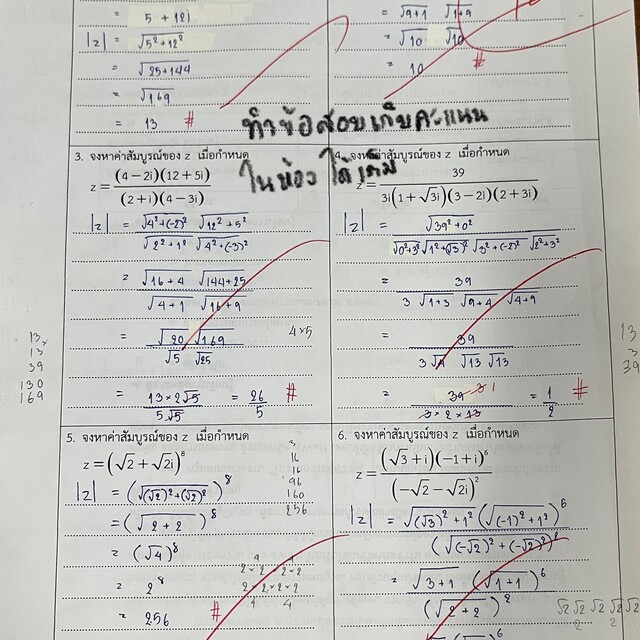 = 5 + 12i
|z| = √5²+12²
= √25+144
= √169
= 13 #
= √9+1 √1+9
= √10 √10
= 10 #
ทำข้อสอบเก็บคะแนน
ในห้อง ได้เต็ม
3. จงหาค่าสัมบูรณ์ของ z เมื่อกำหนด
z = (4−2i)(12+5i)
(2+i)(4−3i)
|z| = √4²+(-2)² √12²+5²
√2²+1² √4²+(-3)²
= √16+4 √144+25
√4+1 √16+9
= √20 √169
√5 √25
4×5
= 13×2√5 = 26 #
5√5 5
13 ×
13
39
130
169
4. จงหาค่าสัมบูรณ์ของ z เมื่อกำหนด
z = 39
3i(1+√3i)(3−2i)(2+3i)
|z| = √39²+0²
√0²+3² √1²+(√3)² √3²+(-2)² √2²+3²
= 39
3 √1+3 √9+4 √4+9
= 39
3√4 √13 √13
= 39 3 1 = 1 #
3×2×13 2
13
3
39
5. จงหาค่าสัมบูรณ์ของ z เมื่อกำหนด
z = (√2 + √2i)⁸
|z| = (√(√2)²+(√2)²)⁸
= (√2+2)⁸
= (√4)⁸
= 2⁸
= 256 #
3
16
16
96
160
256
4 4
2×2×2×2
2×2×2×2
4 4
6. จงหาค่าสัมบูรณ์ของ z เมื่อกำหนด
z = (√3+i)(−1+i)⁶
(−√2−√2i)²
|z| = √(√3)²+1² (√(-1)²+1²)⁶
(√(-√2)²+(-√2)²)²
= √3+1 (√1+1)⁶
(√2+2)²
√2 √2 √2 √2 √2